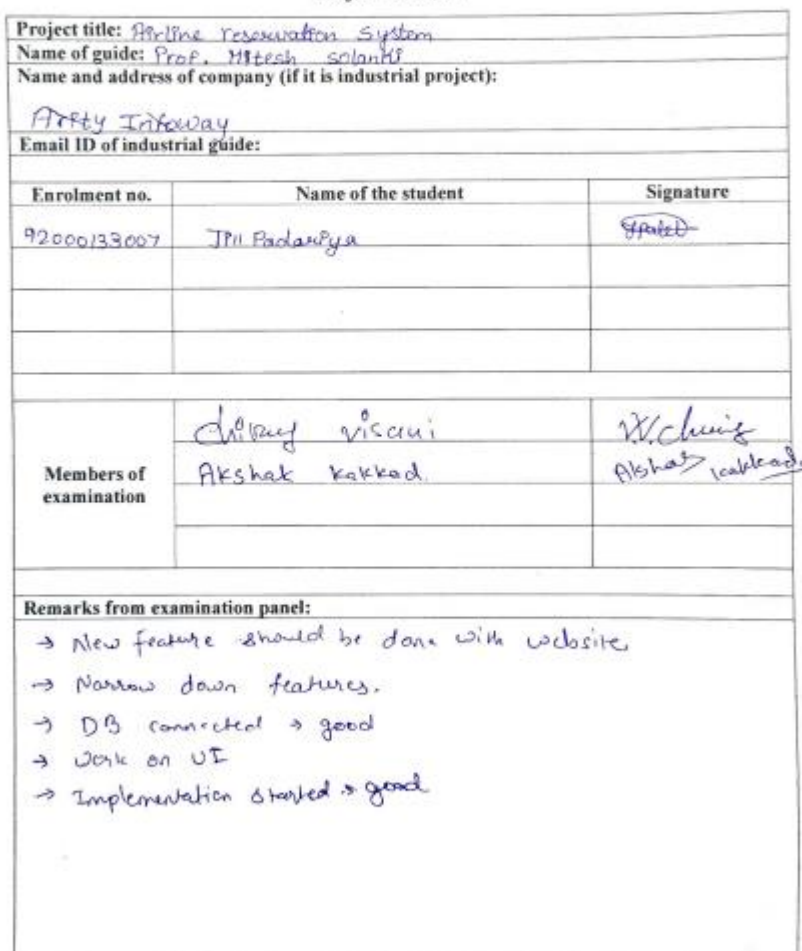 Project title: Airline reservation system
Name of guide: Prof. Mitesh solanki
Name and address of company (if it is industrial project):
Infoway
Email ID of industrial guide:
Enrolment no. Name of the student Signature
92000133007 Jill Padariya
chirag visani
Members of examination
Akshak kakkad. Akshak kakkad.
Remarks from examination panel:
→ New feature should be done with website.
→ Narrow down features.
→ DB connected → good
→ Work on UI
→ Implementation started → good